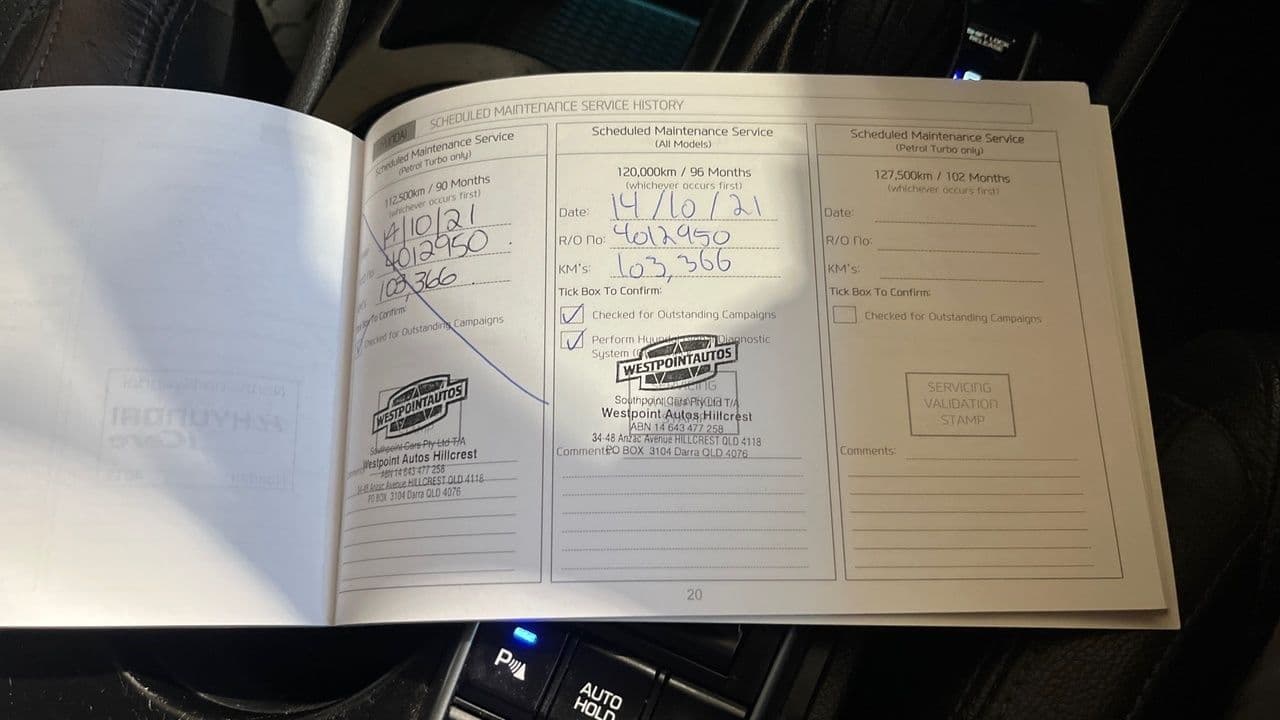 SHIFT LOCK
RELEASE
HYUNDAI
SCHEDULED MAINTENANCE SERVICE HISTORY
Scheduled Maintenance Service
(Petrol Turbo only)
112,500km / 90 Months
(whichever occurs first)
14/10/21
4012950
103,366
To Confirm:
Checked for Outstanding Campaigns
WESTPOINTAUTOS
Southpoint Cars Pty Ltd T/A
Westpoint Autos Hillcrest
ABN 14 643 477 258
34-48 Anzac Avenue HILLCREST QLD 4118
PO BOX 3104 Darra QLD 4076
Scheduled Maintenance Service
(All Models)
120,000km / 96 Months
(whichever occurs first)
Date: 14/10/21
R/O No: 4012950
KM's: 103,366
Tick Box To Confirm:
Checked for Outstanding Campaigns
Perform Diagnostic
System
WESTPOINTAUTOS
Southpoint Cars Pty Ltd T/A
Westpoint Autos Hillcrest
ABN 14 643 477 258
34-48 Anzac Avenue HILLCREST QLD 4118
PO BOX 3104 Darra QLD 4076
Scheduled Maintenance Service
(Petrol Turbo only)
127,500km / 102 Months
(whichever occurs first)
Date:
R/O No:
KM's:
Tick Box To Confirm:
Checked for Outstanding Campaigns
SERVICING
VALIDATION
STAMP
Comments:
20
P
AUTO
HOLD